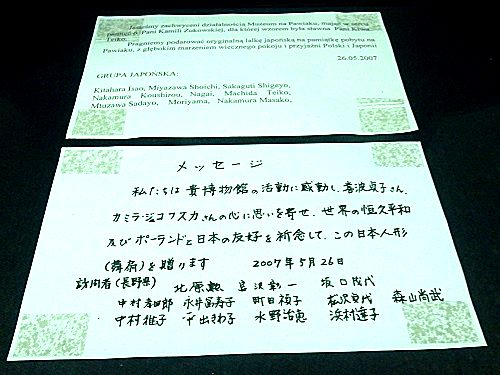 Jesteśmy zachwyceni działalnością Muzeum na Pawiaku, mając w sercu
pamięć o Pani Kamili Żukowskiej, dla której wzorem była sławna Pani Kiwa
Teiko.
Pragniemy podarować oryginalną lalkę japońską na pamiątkę pobytu na
Pawiaku, z głębokim marzeniem wiecznego pokoju i przyjaźni Polski i Japonii
26.05.2007
GRUPA JAPOŃSKA:
Kitahara Isao, Miyazawa Shoichi, Sakaguti Shigeyo,
Nakamura Koushizou, Nagai, Machida Teiko,
Mtuzawa Sadayo, Moriyama, Nakamura Masako,
メッセージ
私たちは貴博物館の活動に感動し、喜波貞子さん、
カミラ・ジュコフスカさんの心に思いを寄せ、世界の恒久平和
及びポーランドと日本の友好を祈念して、この日本人形
(舞扇)を贈ります 2007年5月26日
訪問者(長野県) 北原勲 宮沢彰一 坂口成代
中村孝四郎 永井富寿子 町田禎子 松沢貞代 森山尚武
中村雅子 中出きわ子 水野治恵 浜村達子